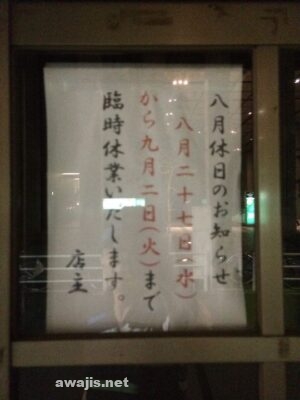 八月休日のお知らせ
八月二十七日(水)
から九月二日(火)まで
臨時休業いたします。
店主
awajis.net